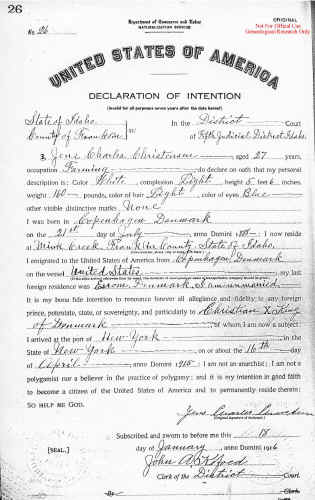 26
Department of Commerce and Labor
ORIGINAL
NATURALIZATION SERVICE
Not For Official Use
Genealogical Research Only
No. 26
UNITED STATES OF AMERICA
DECLARATION OF INTENTION
(Invalid for all purposes seven years after the date hereof)
State of Idaho, In the District Court
County of Franklin ss: of Fifth Judicial District Idaho.
I, Jens Charles Christensen, aged 27 years,
occupation Farming, do declare on oath that my personal
description is: Color White, complexion Light, height 5 feet 6 inches,
weight 160 pounds, color of hair Light, color of eyes Blue
other visible distinctive marks None
I was born in Copenhagen Denmark
on the 21st day of July, anno Domini 188; I now reside
at Mink Creek Franklin County, State of Idaho.
I emigrated to the United States of America from Copenhagen Denmark
on the vessel United States; my last
foreign residence was Denmark I am unmarried
It is my bona fide intention to renounce forever all allegiance and fidelity to any foreign
prince, potentate, state, or sovereignty, and particularly to Christian X King
of Denmark, of whom I am now a subject
I arrived at the port of New York, in the
State of New York, on or about the 16th day
of April, anno Domini 1915; I am not an anarchist; I am not a
polygamist nor a believer in the practice of polygamy; and it is my intention in good faith
to become a citizen of the United States of America and to permanently reside therein:
SO HELP ME GOD.
Jens Charles Christensen
(Original signature of declarant.)
Subscribed and sworn to before me this 18
[SEAL.] day of January, anno Domini 1916
John
Clerk of the District Court.
By